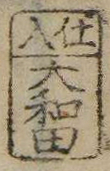 仕入
大和田